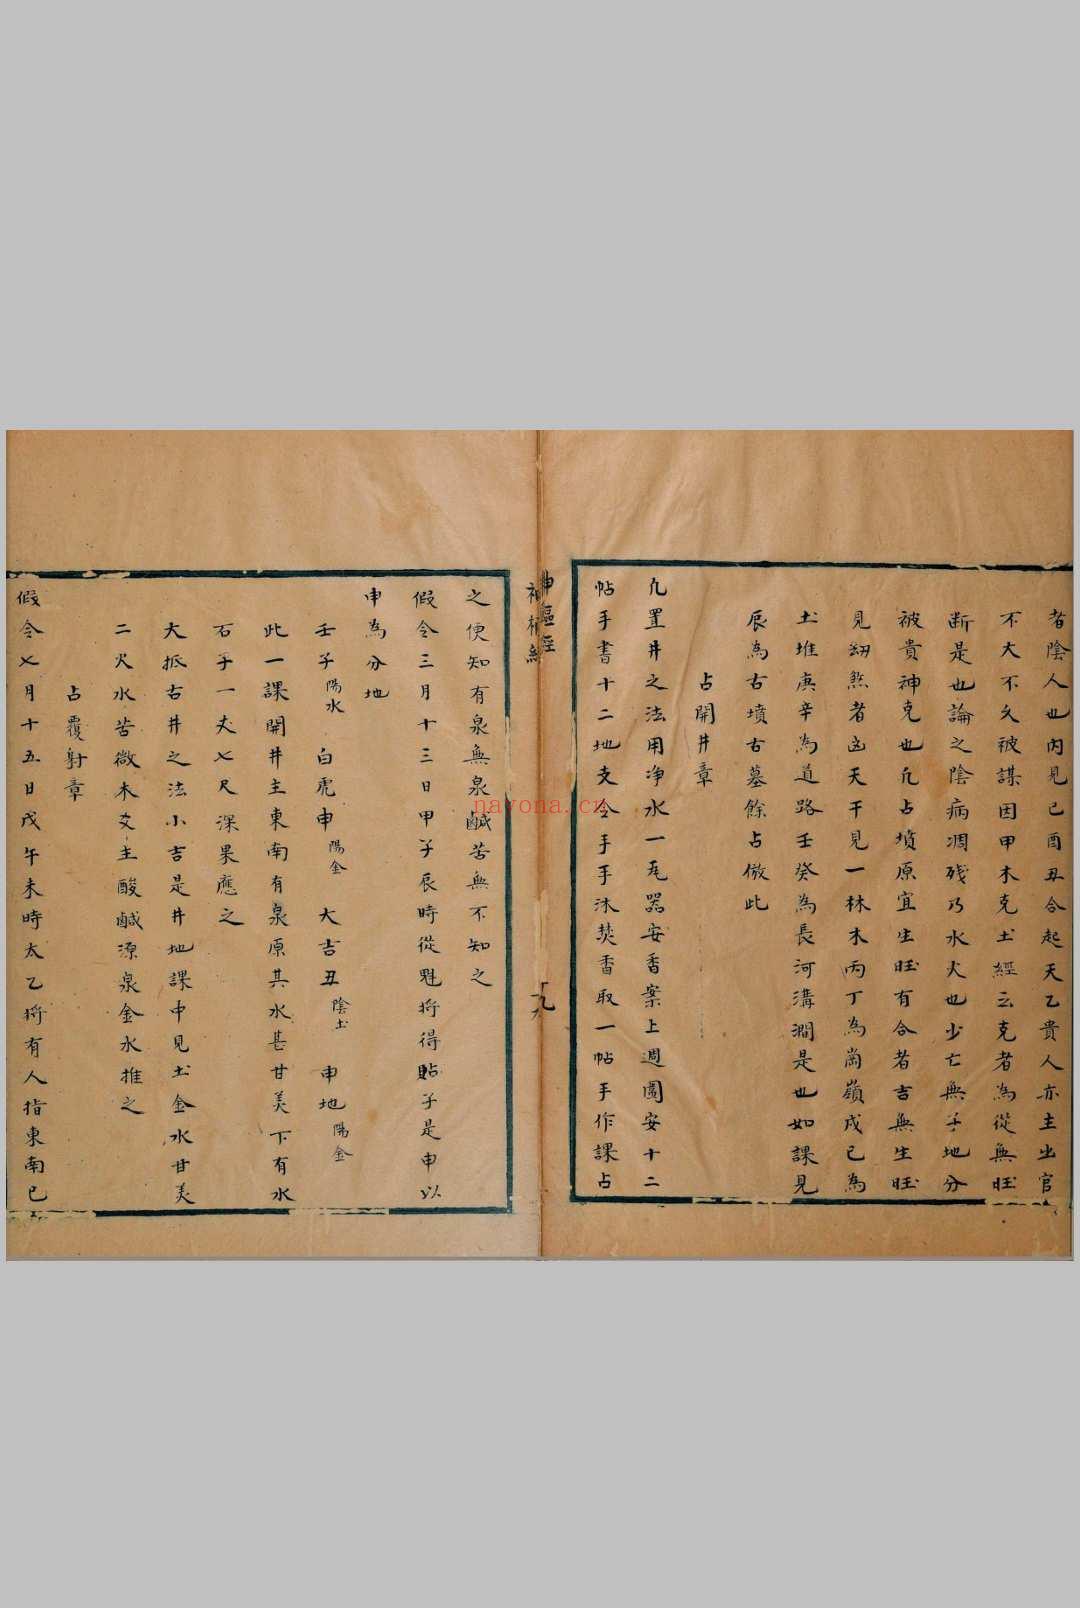 者陰人也内見己酉丑合起天乙貴人亦主出官
不大不久被謀因甲木克土經云克者為從無旺
断是也論之陰病凋残乃水火也少亡無子地分
被貴神克也凢占墳原宜生旺有合者吉無生旺
見刼煞者凶天干見一林木丙丁為崗嶺戊己為
土堆庚辛為道路壬癸為長河溝澗是也如課見
辰為古墳古墓餘占倣此
占開井章
凢置井之法用净水一瓦器安香案上週圍安十二
帖手書十二地支令手手沐焚香取一帖手作課占
神樞經
十九
之便知有泉無泉鹹苦無不知之
假令三月十三日甲子辰時從魁將得貼子是申以
申為分地
壬子陽水 白虎申陽金 大吉丑陰土 申地陽金
此一課開井主東南有泉原其水甚甘美下有水
石子一丈七尺深果應之
大抵古井之法小吉是井地課中見土金水甘美
二火水苦微木爻主酸鹹源泉金水推之
占覆射章
假令七月十五日戊午未時太乙將有人指東南巳
navona.cn